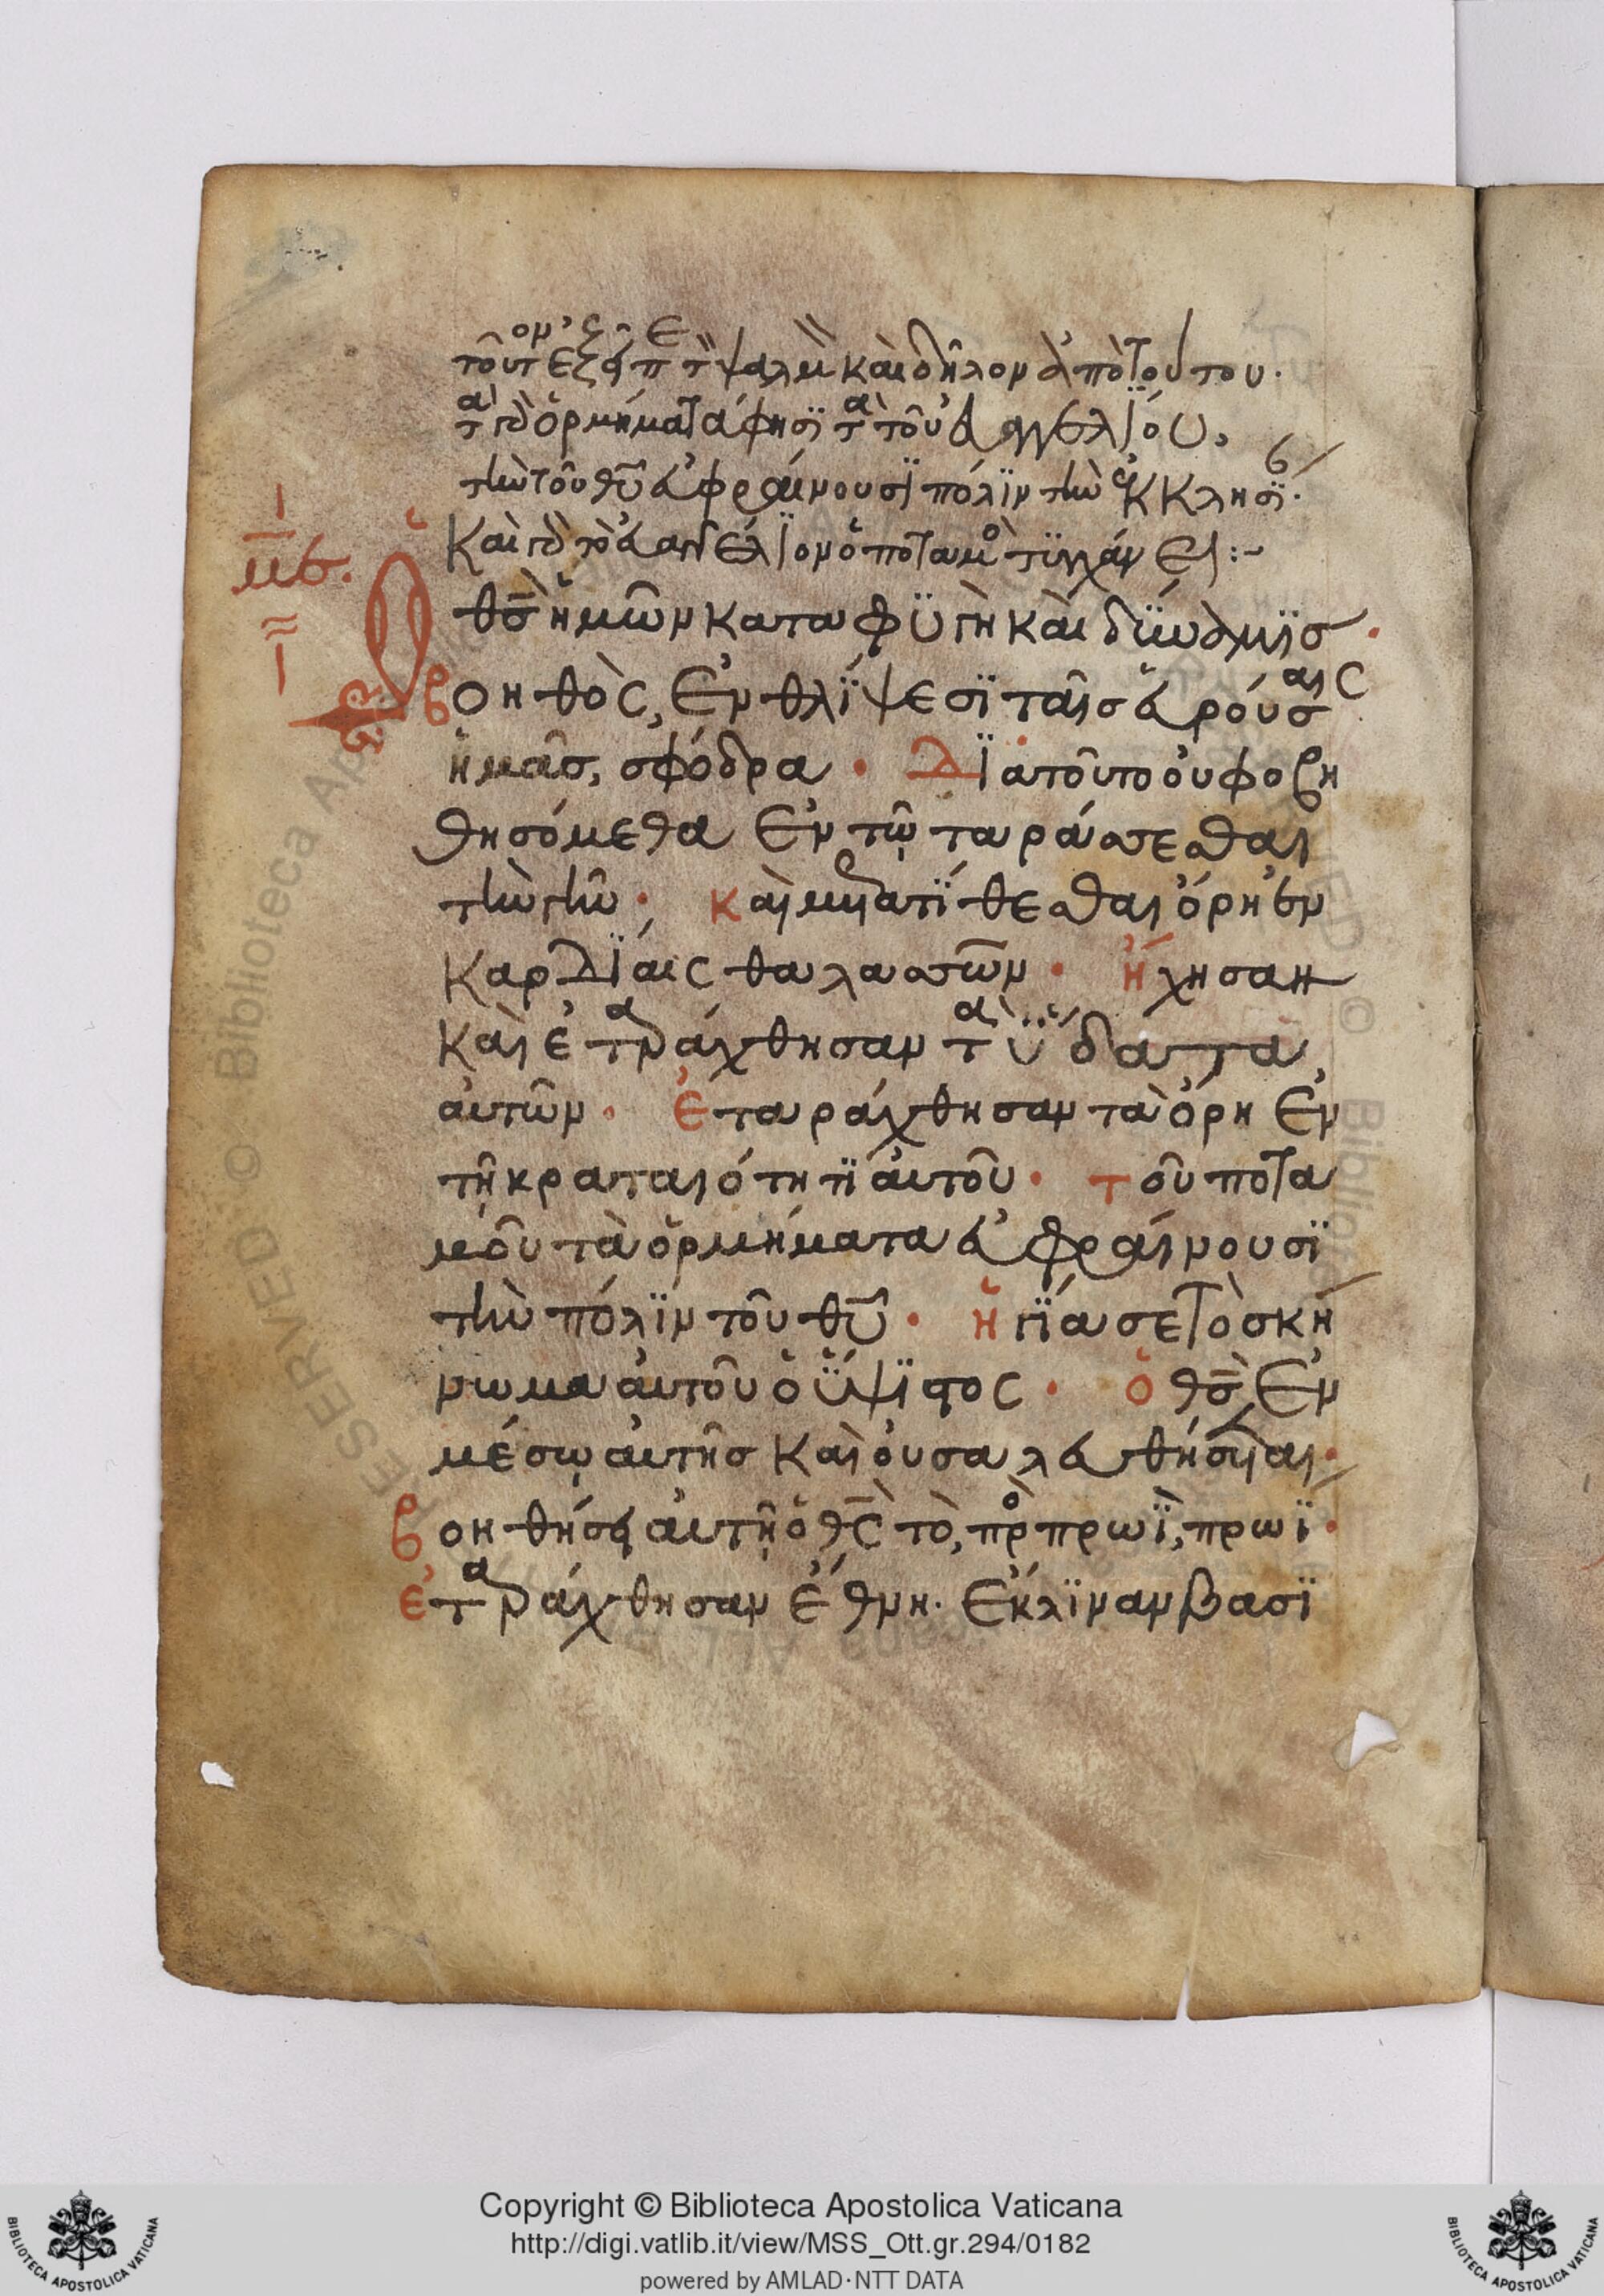 τοῦτ ἐξ π τ ψαλμ καὶ δῆλον ἀπὸ τούτου.
τ γὰρ ὁρμήματα φησϊ τ τοῦ ἐυαγγελΐου,
τὴν τοῦ θῦ ἐυφραίνουσϊ πόλϊν τὴν ἐκκλησϊ.
Καὶ γὰρ τὸ ἐυαγγέλϊον ὁ ποταμὸ τϋγχάνει:~
με.
Ὁ θσ ἡμῶν καταφϋγὴ καὶ δϋναμις
βοηθὸς, ἐν θλΐψεσϊ ταῖσ ἑυρούσαις
ἡμᾶσ, σφόδρα · Δϊατοῦτο ὀυ φοβη
θησόμεθα ἐν τῷ ταράσσεσθαι
τὴν γῆν · καὶ μετατΐθεσθαι ὄρη ἐν
καρδΐαις θαλασσῶν · ἤχησαν
καὶ ἐταράχθησαν τὰ ὕδατα
ἀυτῶν · ἐταράχθησαν τὰ ὄρη ἐν
τῇ κραταιότητϊ ἀυτοῦ · τοῦ ποτα
μοῦ τὰ ὁρμήματα ἐυφραίνουσϊ
τὴν πόλϊν τοῦ θῦ · ἡγΐασε τὸ σκή
νωμα ἀυτοῦ ὁ ὕψϊστος · ὁ θσ ἐν
μέσῳ ἀυτῆσ καὶ ὀυ σαλευθήσεται ·
βοηθήσει ἀυτῇ ὁ θς τὸ, πρὸ πρωῒ, πρωϊ ·
ἐταράχθησαν ἔθνη · ἔκλϊναν βασϊ
Copyright © Biblioteca Apostolica Vaticana
http://digi.vatlib.it/view/MSS_Ott.gr.294/0182
powered by AMLAD·NTT DATA